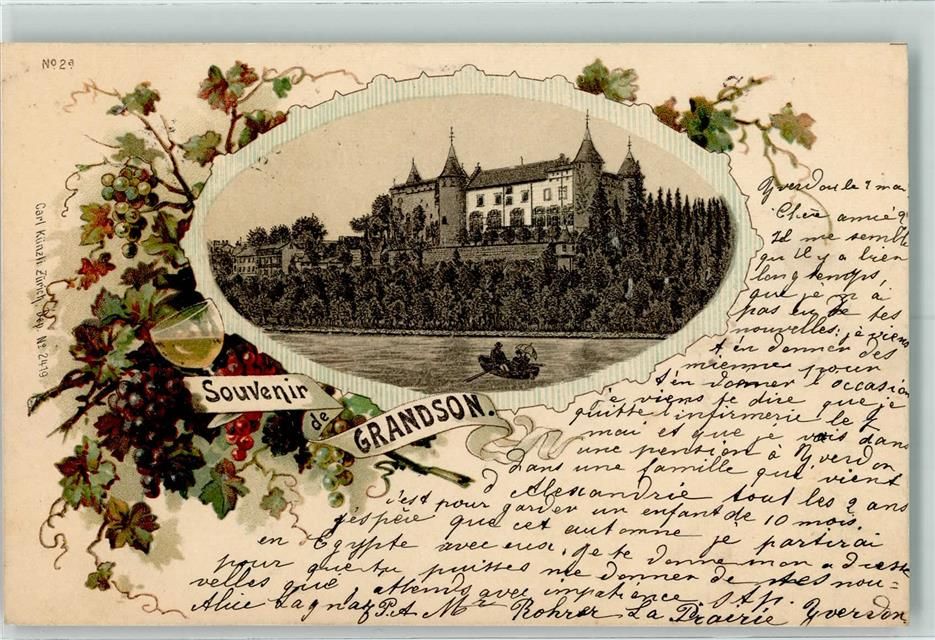 No 2a
Carl Künzli, Zürich, Dép. No 2419
Souvenir
de
GRANDSON.
Yverdon le 2 mai
Chère amie
Il me semble
qu'il y a bien
longtemps,
que je n'ai
pas eu de tes
nouvelles; je viens
t'en donner des
miennes pour
t'en donner l'occasion
je viens te dire que je
quitte l'infirmerie le 7
mai et que je vais dans
une pension à Yverdon
dans une famille qui vient
d'Alexandrie tout les 2 ans
c'est pour garder un enfant de 10 mois.
j'espère que cet automne je partirai
en Egypte avec eux. Je te donne mon adresse
pour que tu puisses me donner de tes nou-
velles que j'attends avec impatience.
Alice P.A Mr Rohrer La Prairie Yverdon